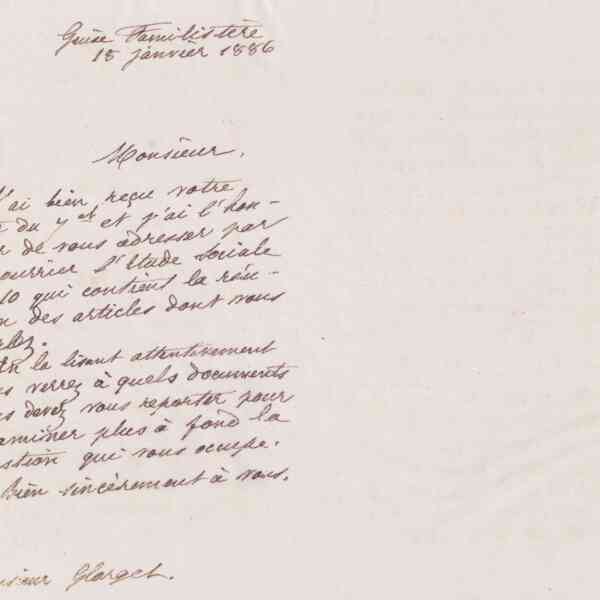 Guise Familistère
18 janvier 1886
Monsieur,
J'ai bien reçu votre
du 7 ct et j'ai l'hon-
r de vous adresser par
courrier l'Etude Sociale
10 qui contient la réu-
n des articles dont vous
lez.
En la lisant attentivement
us verrez à quels documents
us devez vous reporter pour
aminer plus à fond la
stion qui vous occupe.
Bien sincèrement à vous.
sieur Glorget.